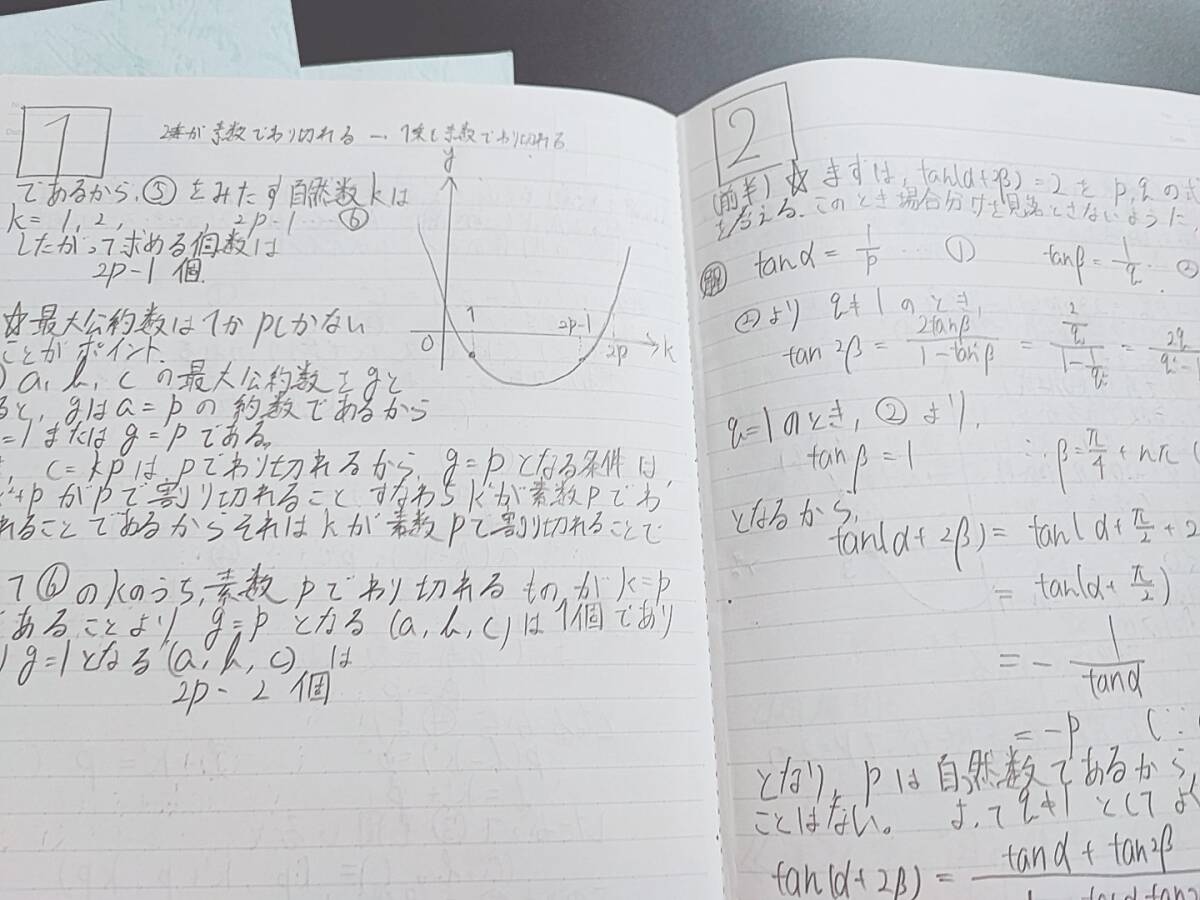 1
2乗が素数でわり切れる → 1乗も素数でわり切れる
であるから、⑤をみたす自然数kは
k=1, 2, ……, 2p-1 …… ⑥
したがって求める個数は
2p-1 個
y
0
1
2p-1
2p
k
☆最大公約数は1かpしかない
ことがポイント.
) a, b, c の最大公約数をgと
ると, gはa=pの約数であるから
=1またはg=pである。
, c=kpはpでわり切れるから, g=pとなる条件は,
k²+pがpで割り切れること すなわちk²が素数pでわ
れることであるからそれはkが素数pで割り切れることで
て⑥のkのうち,素数pでわり切れるものがk=p
であることより, g=pとなる(a, b, c)は1個であり
g=1となる(a, b, c)は
2p-2 個
2
(前半) ☆まずは, tan(α+2β)=2をp, qの式
と考える. このとき場合分けを見落とさないように,
解 tanα=1/p …… ① tanβ=1/q …… ②
②より q≠1のとき,
tan2β = 2tanβ/(1-tan²β) = (2/q)/(1-1/q²) = 2q/(q²-1
q=1のとき, ②より,
tanβ=1 ∴ β=π/4+nπ (
となるから,
tan(α+2β)=tan(α+π/2+2
=tan(α+π/2)
=-1/tanα
=-p (∵
となり, pは自然数であるから,
ことはない。 よってq≠1としてよく
tan(α+2β)= tanα+tan2β